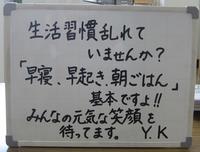 生活習慣乱れて
いませんか?
「早寝、早起き、朝ごはん」
基本ですよ!!
みんなの元気な笑顔を
待ってます。 Y.K